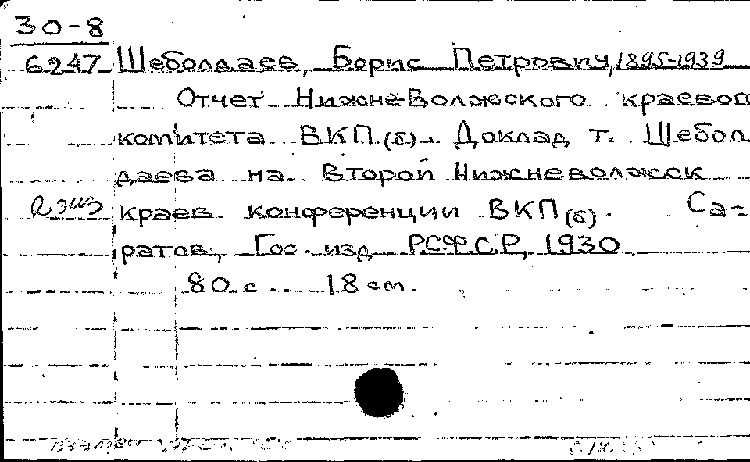 30-8
6247 Шеболдаев, Борис Петрович, 1895-1939
Отчет Нижне-Волжского краевог
комитета ВКП(б). Доклад т. Шебол
даева на Второй Нижневолжск
2 экз краев. конференции ВКП(б). Са=
ратов, Гос. изд. РСФСР, 1930
80 с. 18 см.